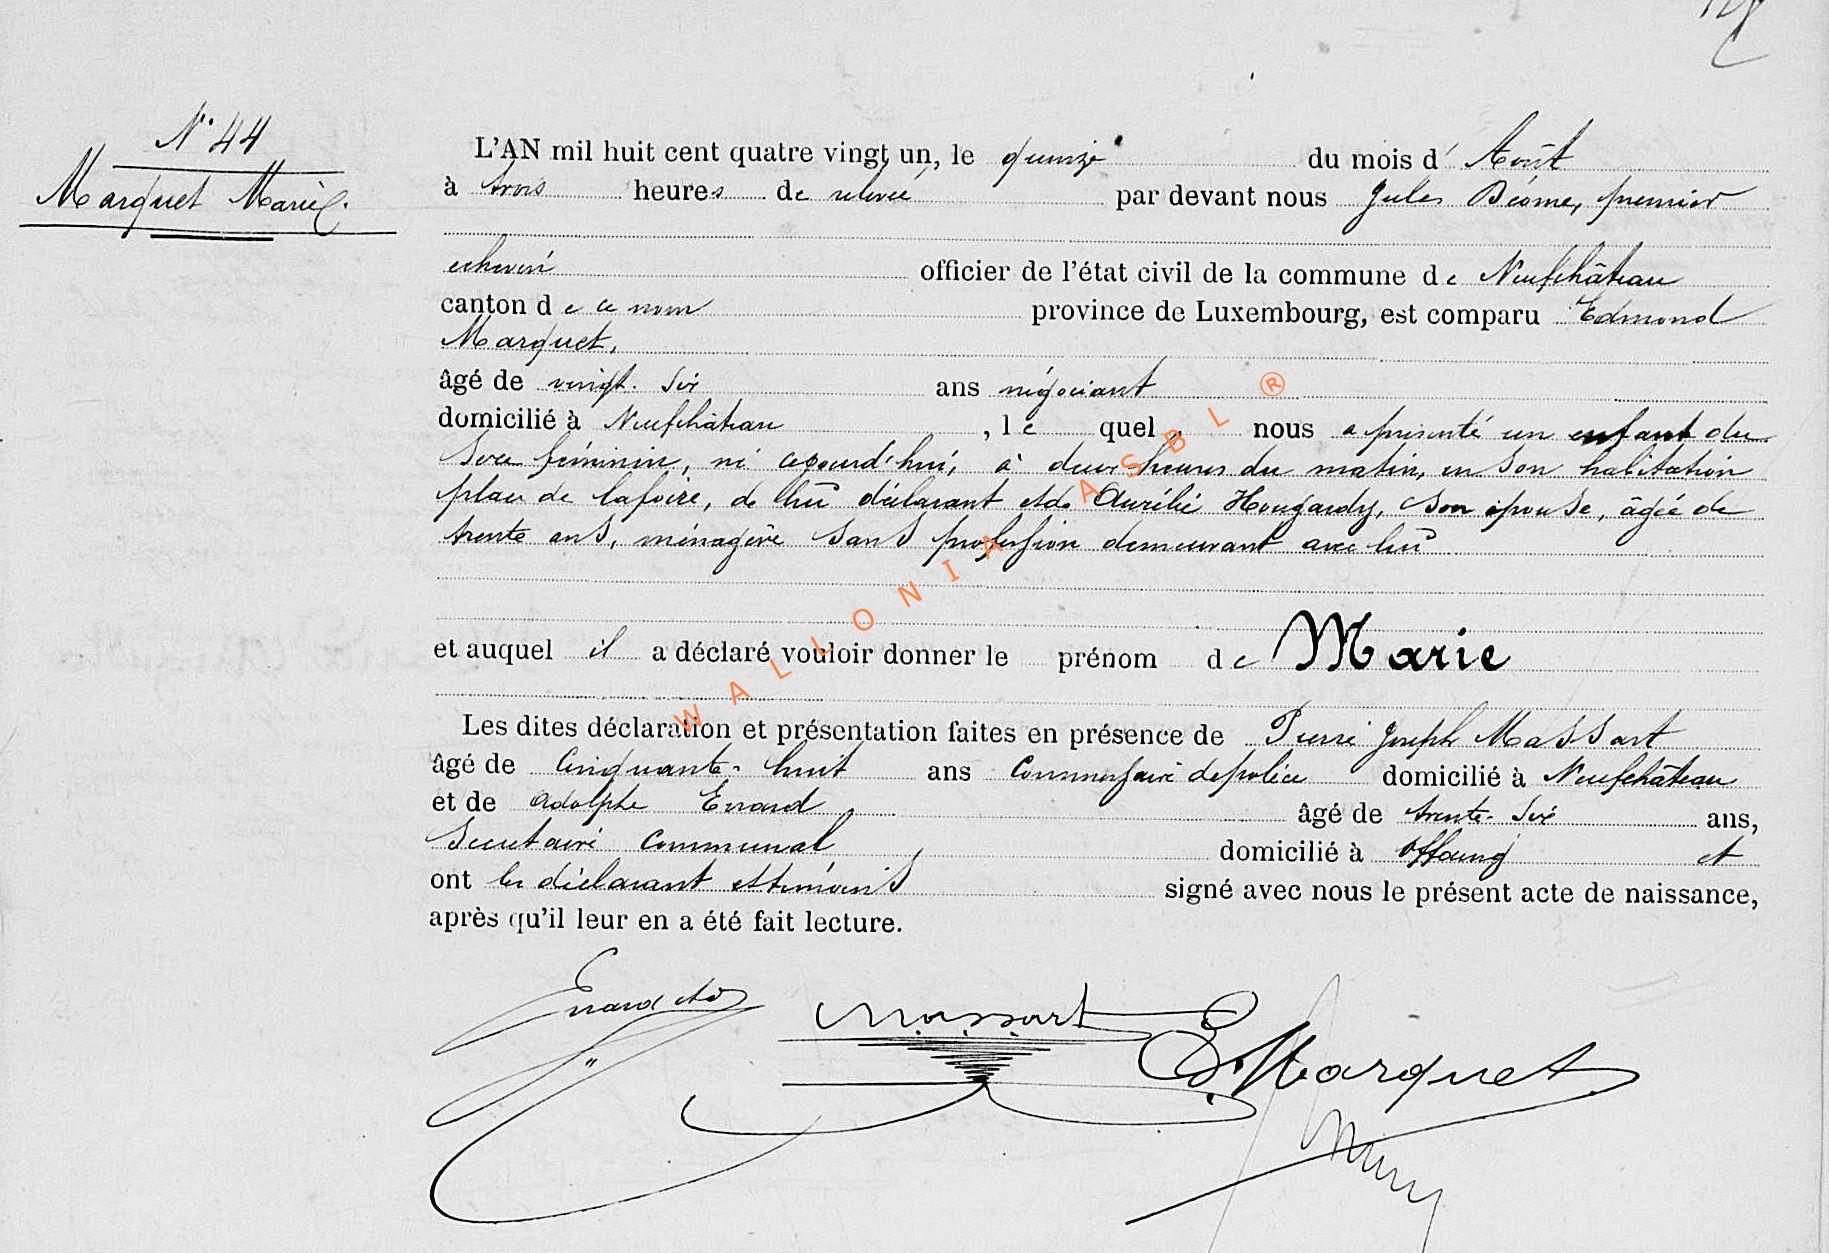 N° 44
Marquet Marie.
L'AN mil huit cent quatre vingt un, le quinze du mois d' Août
à trois heures de relevée par devant nous Jules Déome, premier
echevin officier de l'état civil de la commune de Neufchâteau
canton de ce nom province de Luxembourg, est comparu Edmond
Marquet,
âgé de vingt-six ans négociant
domicilié à Neufchâteau, lequel nous a présenté un enfant du
sexe féminin, né cejourd'hui, à deux heures du matin, en son habitation
place de la foire, de lui déclarant et de Aurélie Hougardy, son épouse, âgée de
trente ans, ménagère sans profession demeurant avec lui
et auquel il a déclaré vouloir donner le prénom de Marie
Les dites déclaration et présentation faites en présence de Pierre Joseph Massart
âgé de cinquante-huit ans Commissaire de police domicilié à Neufchâteau
et de Adolphe Evrard, âgé de trente-six ans,
Secretaire Communal domicilié à Offaing et
ont les déclarant et témoins signé avec nous le présent acte de naissance,
après qu'il leur en a été fait lecture.
Massart
E. Marquet
WALLONIA ASBL ®